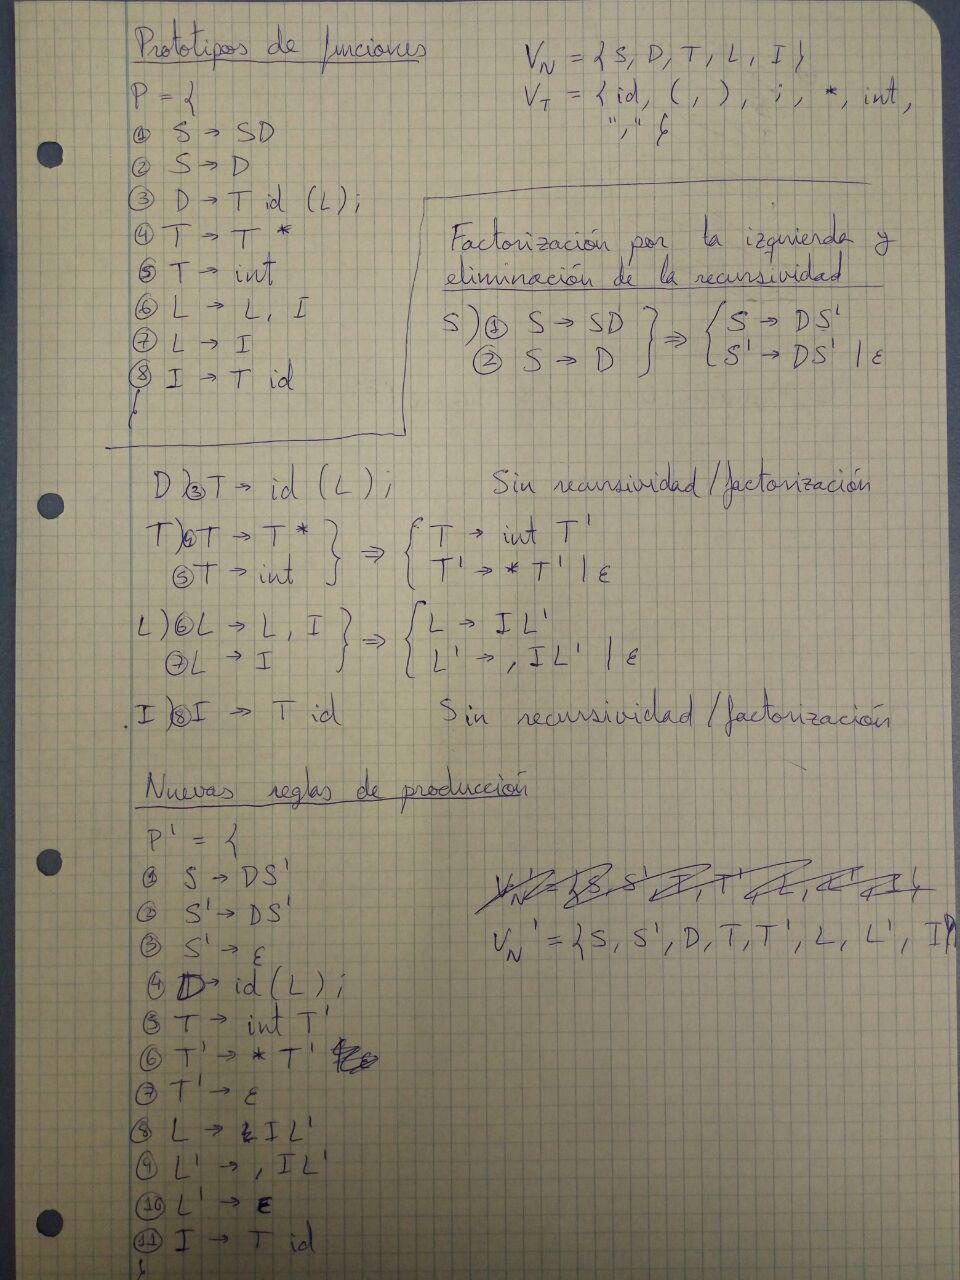 Prototipos de funciones
P = {
① S → SD
② S → D
③ D → T id (L);
④ T → T *
⑤ T → int
⑥ L → L, I
⑦ L → I
⑧ I → T id
}
V_N = {S, D, T, L, I}
V_T = {id, (, ), ;, *, int,
"," }
Factorización por la izquierda y
eliminación de la recursividad
S) ① S → SD } ⇒ { S → DS'
② S → D } { S' → DS' | ε
D) ③ T → id (L); Sin recursividad/factorización
T) ④ T → T * } ⇒ { T → int T'
⑤ T → int } { T' → * T' | ε
L) ⑥ L → L, I } ⇒ { L → IL'
⑦ L → I } { L' → , IL' | ε
I) ⑧ I → T id Sin recursividad/factorización
Nuevas reglas de producción
P' = {
① S → DS'
② S' → DS'
③ S' → ε
④ D → id (L);
⑤ T → int T'
⑥ T' → * T'
⑦ T' → ε
⑧ L → IL'
⑨ L' → , IL'
⑩ L' → ε
⑪ I → T id
}
V_N' = {S, S', D, T, T', L, L', I}